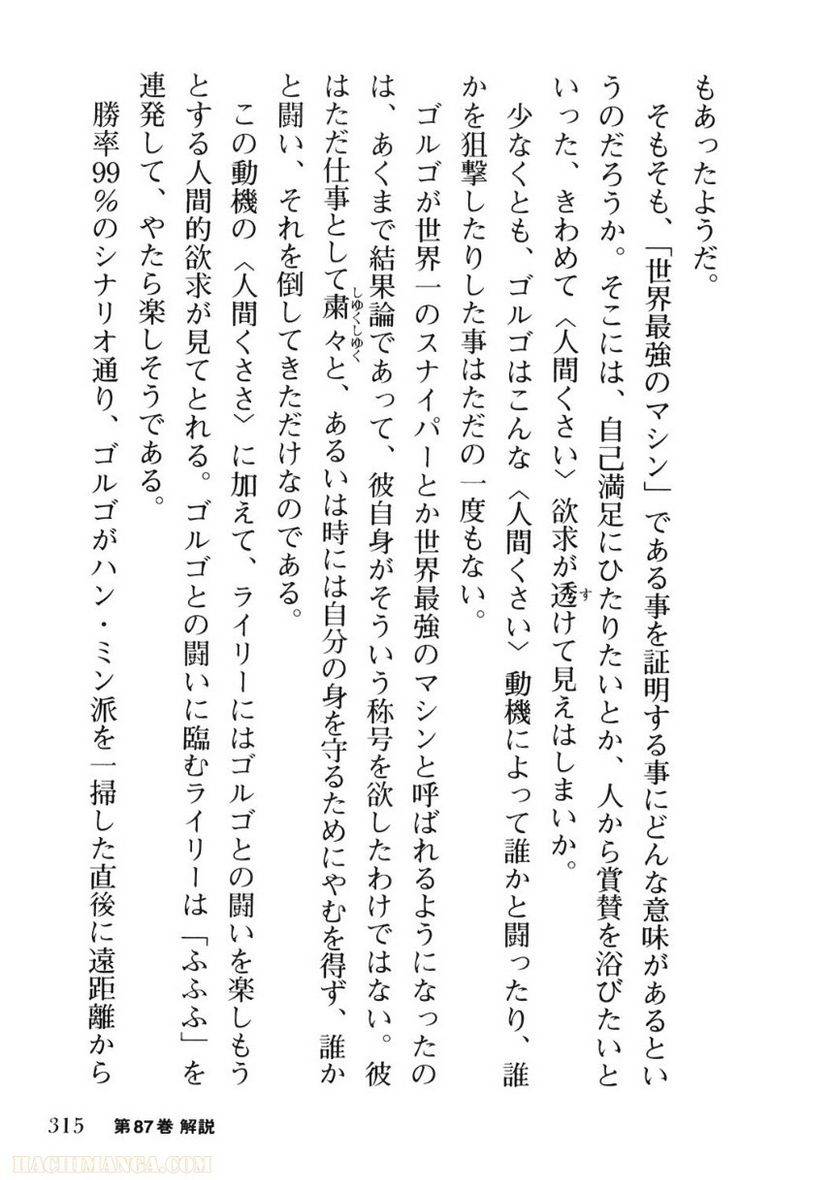 もあったようだ。
そもそも、「世界最強のマシン」である事を証明する事にどんな意味があるとい
うのだろうか。そこには、自己満足にひたりたいとか、人から賞賛を浴びたいと
いった、きわめて〈人間くさい〉欲求が透けて見えはしまいか。
す
少なくとも、ゴルゴはこんな〈人間くさい〉動機によって誰かと闘ったり、誰
かを狙撃したりした事はただの一度もない。
ゴルゴが世界一のスナイパーとか世界最強のマシンと呼ばれるようになったの
は、あくまで結果論であって、彼自身がそういう称号を欲したわけではない。彼
はただ仕事として粛々と、あるいは時には自分の身を守るためにやむを得ず、誰か
しゆくしゆく
と闘い、それを倒してきただけなのである。
この動機の〈人間くささ〉に加えて、ライリーにはゴルゴとの闘いを楽しもう
とする人間的欲求が見てとれる。ゴルゴとの闘いに臨むライリーは「ふふふ」を
連発して、やたら楽しそうである。
勝率99%のシナリオ通り、ゴルゴがハン・ミン派を一掃した直後に遠距離から
315 第87巻 解説
HACHIMANGA.COM